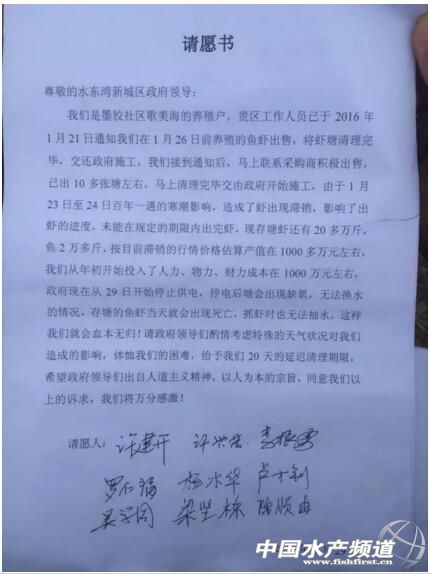 请愿书
尊敬的水东湾新城区政府领导：
我们是墨胶社区歌美海的养殖户，贵区工作人员已于 2016
年 1 月 21 日通知我们在 1 月 26 日前养殖的鱼虾出售，将虾塘清理完
毕，交还政府施工，我们接到通知后，马上联系采购商积极出售，
已出 10 多张塘左右，马上清理完毕交由政府开始施工，由于 1 月
23 日至 24 日百年一遇的寒潮影响，造成了虾出现滞销，影响了出
虾的进度，未能在规定的期限内出完虾，现存塘虾还有 20 多万斤，
鱼 2 万多斤，按目前滞销的行情价格估算产值在 1000 多万元左右，
我们从年初开始投入了人力、物力、财力成本在 1000 万元左右，
政府现在从 29 日开始停止供电，停电后塘会出现缺氧，无法换水
的情况，存塘的鱼虾当天就会出现死亡，抓虾时也无法抽水，这样
我们就会血本无归！请政府领导们酌情考虑特殊的天气状况对我们
造成的影响，体恤我们的困难，给予我们 20 天的延迟清理期限，
希望政府领导们出自人道主义精神，以人为本的宗旨，同意我们以
上的诉求，我们将万分感激！
请愿人：许建开
罗仁福 杨水华
吴学周 梁坚栋
中国水产频道
www.fishfirst.cn